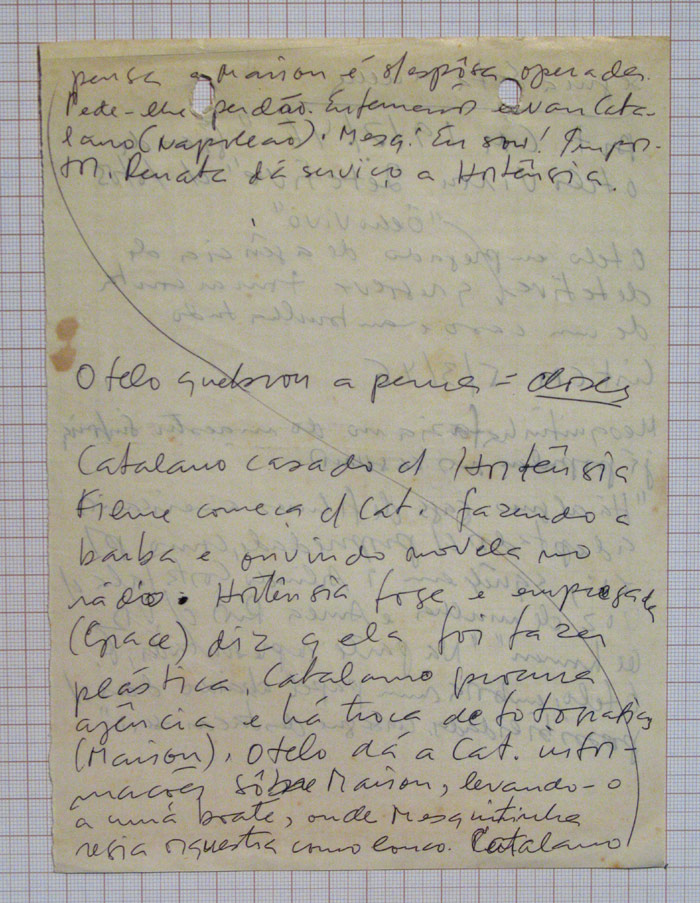 pensa q Marion é s/espôsa operada.
Pede-lhe perdão. Enfermeiros levam Cata-
lano (Napoleão). Mesq: Eu sou! Impos-
tor. Renata dá serviço a Hortênsia.
Otelo quebrou a perna = closes
Catalano casado c/ Hortênsia
Filme começa c/ Cat. fazendo a
barba e ouvindo novela no
rádio. Hortênsia foge e empregada
(Grace) diz q ela foi fazer
plástica. Catalano procura
agência e há troca de fotografias
(Marion). Otelo dá a Cat. infor-
mações sôbre Marion, levando-o
a uma boate, onde Mesquitinha
regia orquestra como louco. Catalano